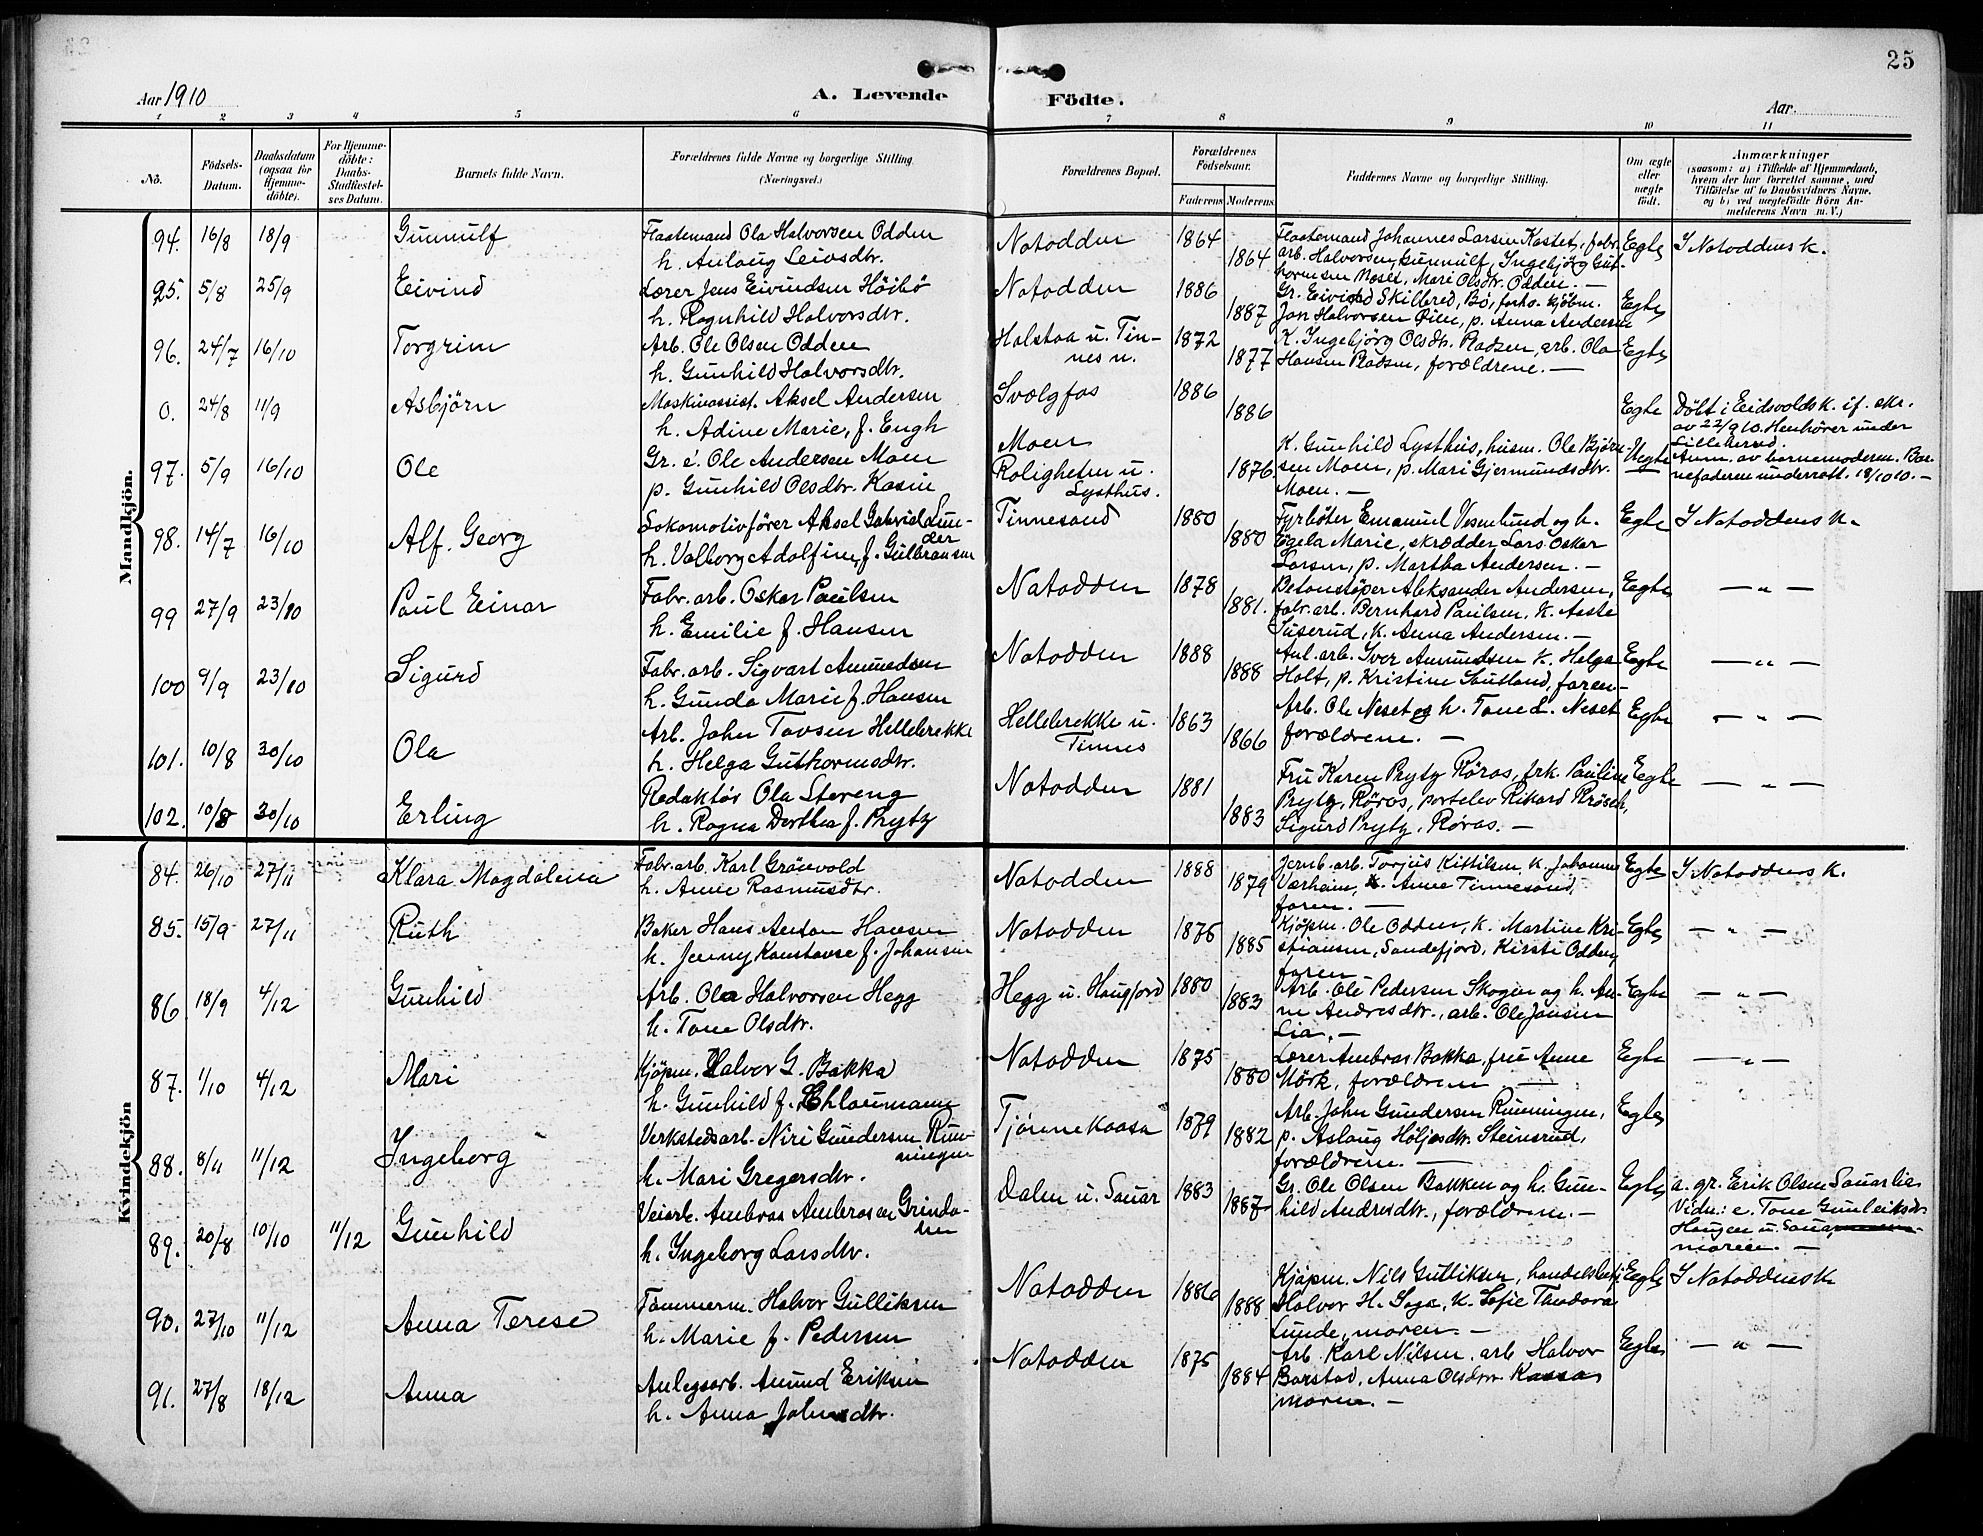 25
Aar 1910
A. Levende Födte.
Aar.
1 2 3 4 5 6 7 8 9 10 11
No.
Födsels-
Datum.
Daabsdatum
(ogsaa for
Hjemme-
döbte).
For Hjemme-
döbte:
Daabs-
Stadfæstel-
ses Datum.
Barnets fulde Navn.
Forældrenes fulde Navne og borgerlige Stilling.
(Næringsvei.)
Forældrenes Bopæl.
Forældrenes
Födselsaar.
Faderens Moderens
Faddernes Navne og borgerlige Stilling.
Om ægte
eller
uægte
födt.
Anmærkninger
(saasom: a) i Tilfælde af Hjemmedaab,
hvem der har forrettet samme, med
Tilföielse af to Daabsvidners Navne,
og b) ved uægtefödte Börn An-
melderens Navn m. V.)
Mandkjön.
94. 16/8 18/9 Gunnulf
Flaatemand Ola Halvorsen Odden
h. Anlaug Leivsdtr.
Notodden 1864 1864
Flaatemand Johannes Larsen Kastet, fabr.
arb. Halvorsen Gunnulf, Ingebjörg Gut-
hormsen Neset, Mari Olsdtr. Odden. —
Egte I Notoddens k.
95. 5/8 25/9 Eivind
Lærer Jens Eivindsen Höibö
h. Ragnhild Halvorsdtr.
Notodden 1886 1887
Gr. Eivind Skilbred, Bö, forh. kjöbm.
Jon Halvorsen Öien, p. Anna Andersen
Egte
96. 24/7 16/10 Torgrim
Arb. Ole Olsen Odden
h. Gunhild Halvorsdtr.
Halstaa u. Tin-
nes u.
1872 1877
K. Ingebjörg Olsdtr. Pladsen, arb. Ola
Hansen Pladsen, forældrene. —
Egte
0. 24/8 11/9 Asbjörn
Maskinassist. Aksel Andersen
h. Adine Marie, f. Engh
Svælgfos 1886 1886
Egte Döbt i Eidsvolds k. if. skr.
av 22/9 10. Henhörer under
Lilleherred.
97. 5/9 16/10 Ole
Gr. e. Ole Andersen Moen
p. Gunhild Olsdtr. Kasin
Moen
Roligheten u.
Lysthus.
1876
K. Gunhild Lysthus, husm. Ole Björn-
sen Moen, p. Mari Gjermundsdtr.
Moen. —
Uegte Anm. av barnemoderen. Bar-
nefaderen underrett. 18/10 10. —
98. 14/7 16/10 Alf Georg
Lokomotivförer Aksel Gabriel Lun-
der
h. Valborg Adolfine, f. Gulbransen
Tinnesand 1880 1880
Fyrböter Emanuel Vesenlund og h.
Egela Marie, skrædder Lars Oskar
Larsen, p. Martha Andersen. —
Egte I Notoddens k.
99 27/9 23/10 Paul Einar
Fabr. arb. Oskar Paulsen
h. Emilie f. Hansen
Notodden 1878 1881.
Betonstöper Aleksander Andersen,
fabr. arb. Bernhard Paulsen, k. Aaste
Tuserud, k. Anna Andersen. —
Egte — " —
100 9/9 23/10 Sigurd
Fabr. arb. Sigvart Amundsen
h. Gunda Marie f. Hansen
Notodden 1888 1888
Anl. arb. Iver Amundsen k. Helga
Holt, p. Kristine Sautland, faren —
Egte — " —
101. 10/8 30/10 Ola
Arb. John Tovsen Hellebrekke
h. Helga Guthormsdtr.
Hellebrekke u.
Tinnes
1863 1866
Arb. Ole Neset og h. Tone d. Neset
forældrene. —
Egte — " —
102. 10/8 30/10 Erling
Redaktör Ola Stereng
h. Ragna Dorthea f. Prytz
Notodden 1881 1883
Fru Karen Prytz Röros, frk. Pauline
Prytz, Röros, portelev Rikard Krösch,
Sigurd Prytz, Röros. —
Egte — " —
Kvindekjön
84. 26/10 27/11 Klara Magdalena
Fabr. arb. Karl Grönvold
h. Anne Rasmusdtr.
Notodden 1888 1879
Jernb. arb. Torjus Kittilsen, k. Johanne
Værheim, k. Anne Tinnesand,
faren. —
Egte I Notoddens k.
85. 15/9 27/11 Ruth
Baker Hans Anton Hansen
h. Jenny Konstanse f. Johansen
Notodden 1875 1885
Kjöpm. Ole Odden, k. Martine Kri-
stiansen, Sandefjord, Kirsti Odden,
faren
Egte — " —
86 18/9 4/12 Gunhild
Arb. Ola Halvorsen Hegg
h. Tone Olsdtr.
Hegg u. Haugfjord 1880 1883
Arb. Ole Pedersen Skogen og h. An-
ne Andresdtr., arb. Ole Jansen
Lia. —
Egte — " —
87. 1/10 4/12 Mari
Kjöpm. Halvor G. Bakka
h. Gunhild f. Chlaumann
Notodden 1875 1880
Lærer Ambros Bakka, fru Anne
Mörk, forældrene —
Egte — " —
88. 8/11 11/12 Ingeborg
Verkstedsarb. Niri Gundersen Run-
ningen
h. Mari Gregersdtr.
Tjönnekaasa 1879 1882
Arb. John Gundersen Runningen,
p. Aslaug Höljesdtr. Steinsrud,
forældrene. —
Egte
89. 20/8 10/10 11/12 Gunhild
Veiarb. Ambros Ambrosen Grinda-
len
h. Ingeborg Larsdtr.
Dalen u. Sauar 1883 1887
Gr. Ole Olsen Bakken og h. Gun-
hild Andresdtr., forældrene. —
Egte a. gr. Erik Olsen Sauarlia
Vidn.: e. Tone Gunleiksdr.
Haugen u. Sauar,
moren. —
90. 27/10 11/12 Anna Terese
Tömmerm. Halvor Gulliksen
h. Marie f. Pedersen
Notodden 1886 1888
Kjöpm. Nils Gulliksen, handelsbetj.
Halvor H. Saga, k. Sofie Theodora
Lunde, moren. —
Egte I Notoddens k
91. 27/8 18/12 Anna
Anlegsarb. Amund Eriksen
h. Anna Johnsdtr.
Notodden 1875 1884
Arb. Karl Nilsen, arb. Halvor
Barstad, Anna Olsdtr. Kaasa
moren. —
Egte — " —